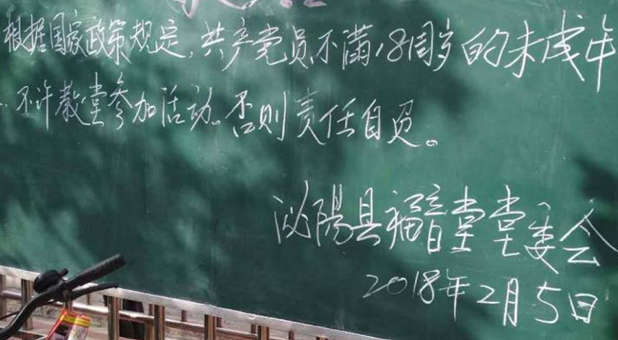 根据国家政策规定,共产党员不满18周岁的未成年
不许教堂参加活动。否则责任自负。
泌阳县福音堂堂委会
2018年2月5日